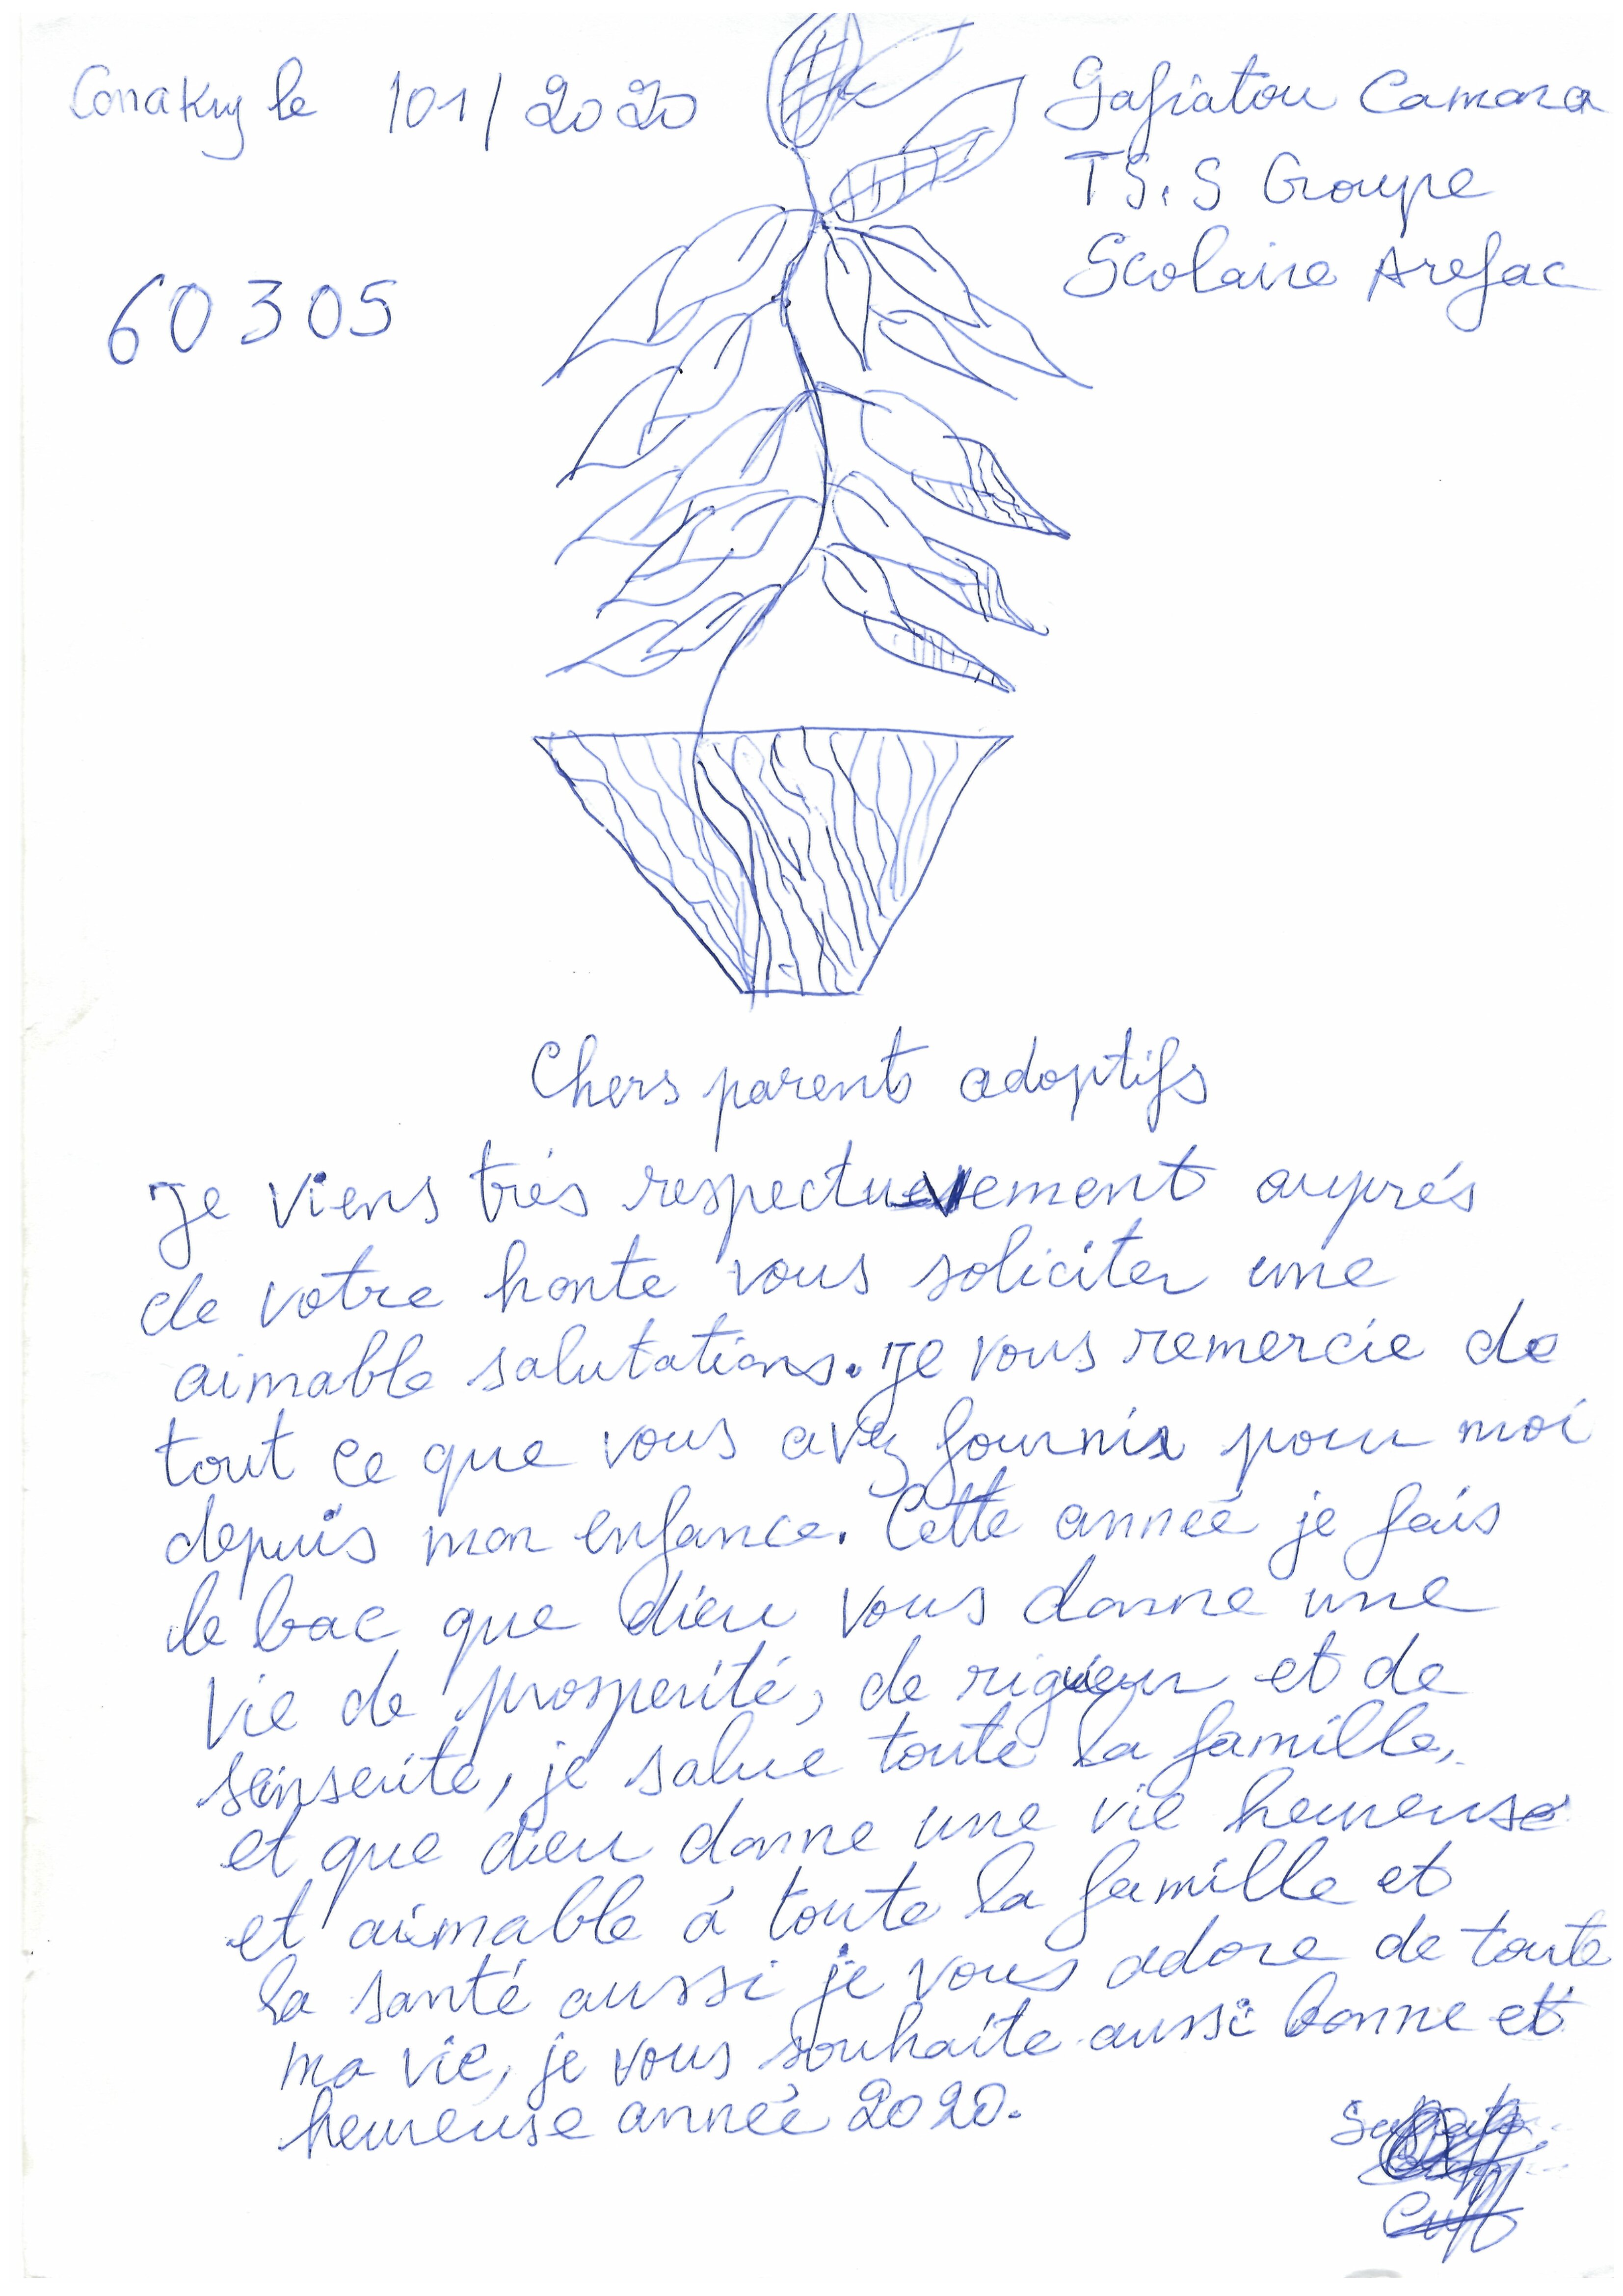 Conakry le 101/2020
Safiatou Camara
TS.S Groupe
Scolaire Arefac
60305
Chers parents adoptifs
Je viens très respectuesement auprés
de votre honte vous soliciter une
aimable salutations. Je vous remercie de
tout ce que vous avez fournis pour moi
depuis mon enfance. Cette année je fais
le bac que dieu vous donne une
vie de prosperité, de rigueur et de
sinserité, je salue toute la famille,
et que dieu donne une vie heureuse
et aimable á toute la famille et
la santé aussi je vous adore de toute
ma vie, je vous souhaite aussi bonne et
heureuse année 2020.